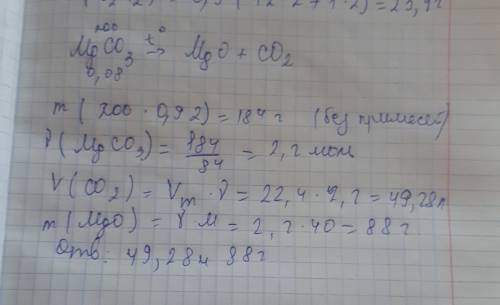 200
MgCO₃ t°→ MgO + CO₂
0,08
m ( 200 · 0,92) = 184 г (без примесей)
ν ( MgCO₃) = 184/84 = 2,2 моль
V (CO₂) = Vm · ν = 22,4 · 2,2 = 49,28л
m (MgO) = ν · M = 2,2 · 40 = 88 г
Отв: 49,28л 88г